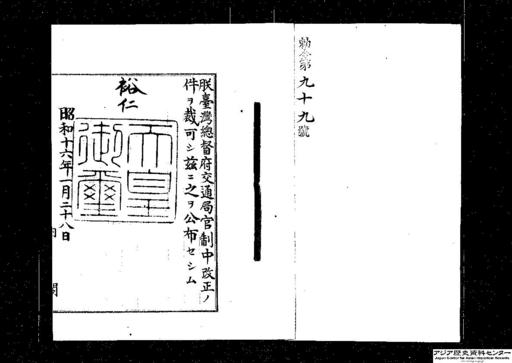 勅令第九十九號
朕臺灣總督府交通局官制中改正ノ
件ヲ裁可シ茲ニ之ヲ公布セシム
裕仁
天皇
御璽
昭和十六年一月二十八日
内閣
アジア歴史資料センター
Japan Center for Asian Historical Records